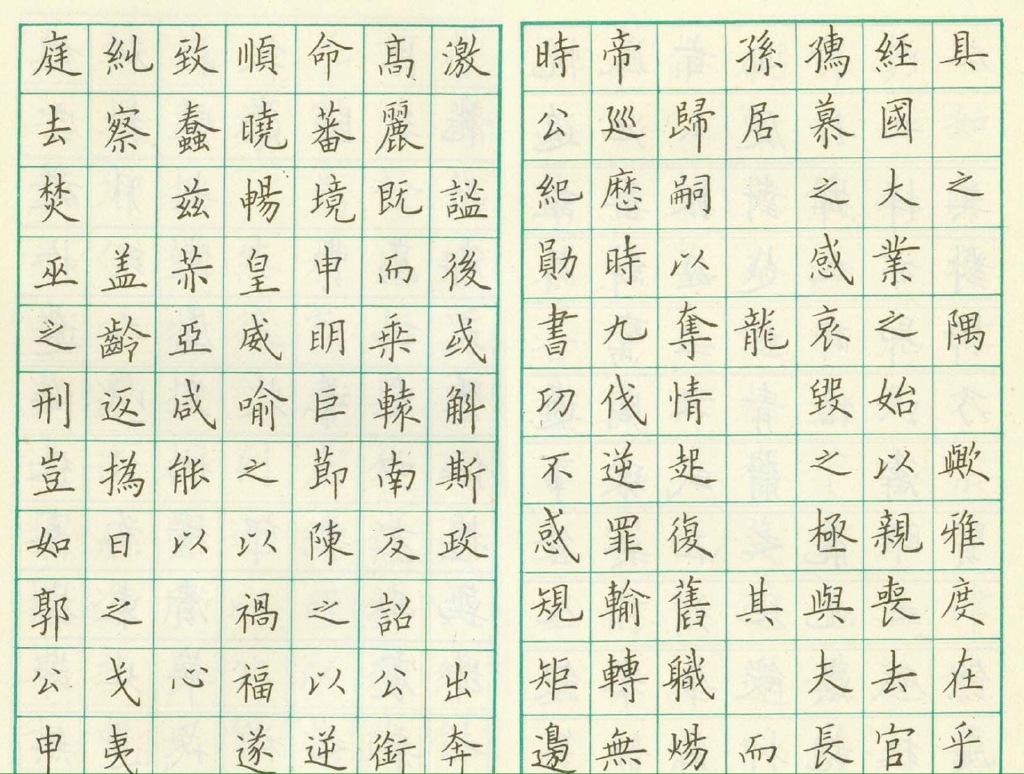 具之隅歟雅度在乎
經國大業之始以親喪去官
慕之感哀毀之極與夫長
孫居龍其而
歸嗣以奪情起復舊職煬
帝巡歷時九伐逆罪輸轉無
時公紀勛書功不惑規矩邊
激謐後或解斯政出奔
高麗既而乘轅南反詔公銜
命蕃境申明巨節陳之以逆
順曉暢皇威喻之以禍福遂
致蠢茲亞咸能以心
糾察蓋齡返撝日之戈夷
庭去焚巫之刑豈如郭公申